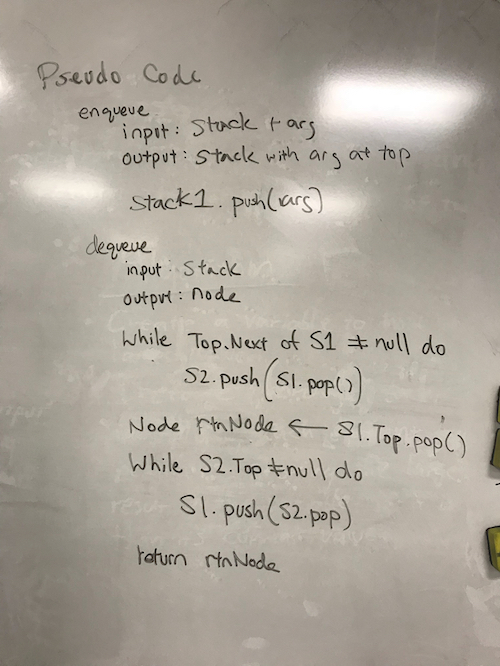 Pseudo Code
enqueue
input: Stack + arg
output: Stack with arg at top
Stack1.push(arg)
dequeue
input: Stack
output: node
While Top.Next of S1 ≠ null do
S2.push(S1.pop())
Node rtnNode ← S1.Top.pop()
While S2.Top ≠ null do
S1.push(S2.pop)
return rtnNode